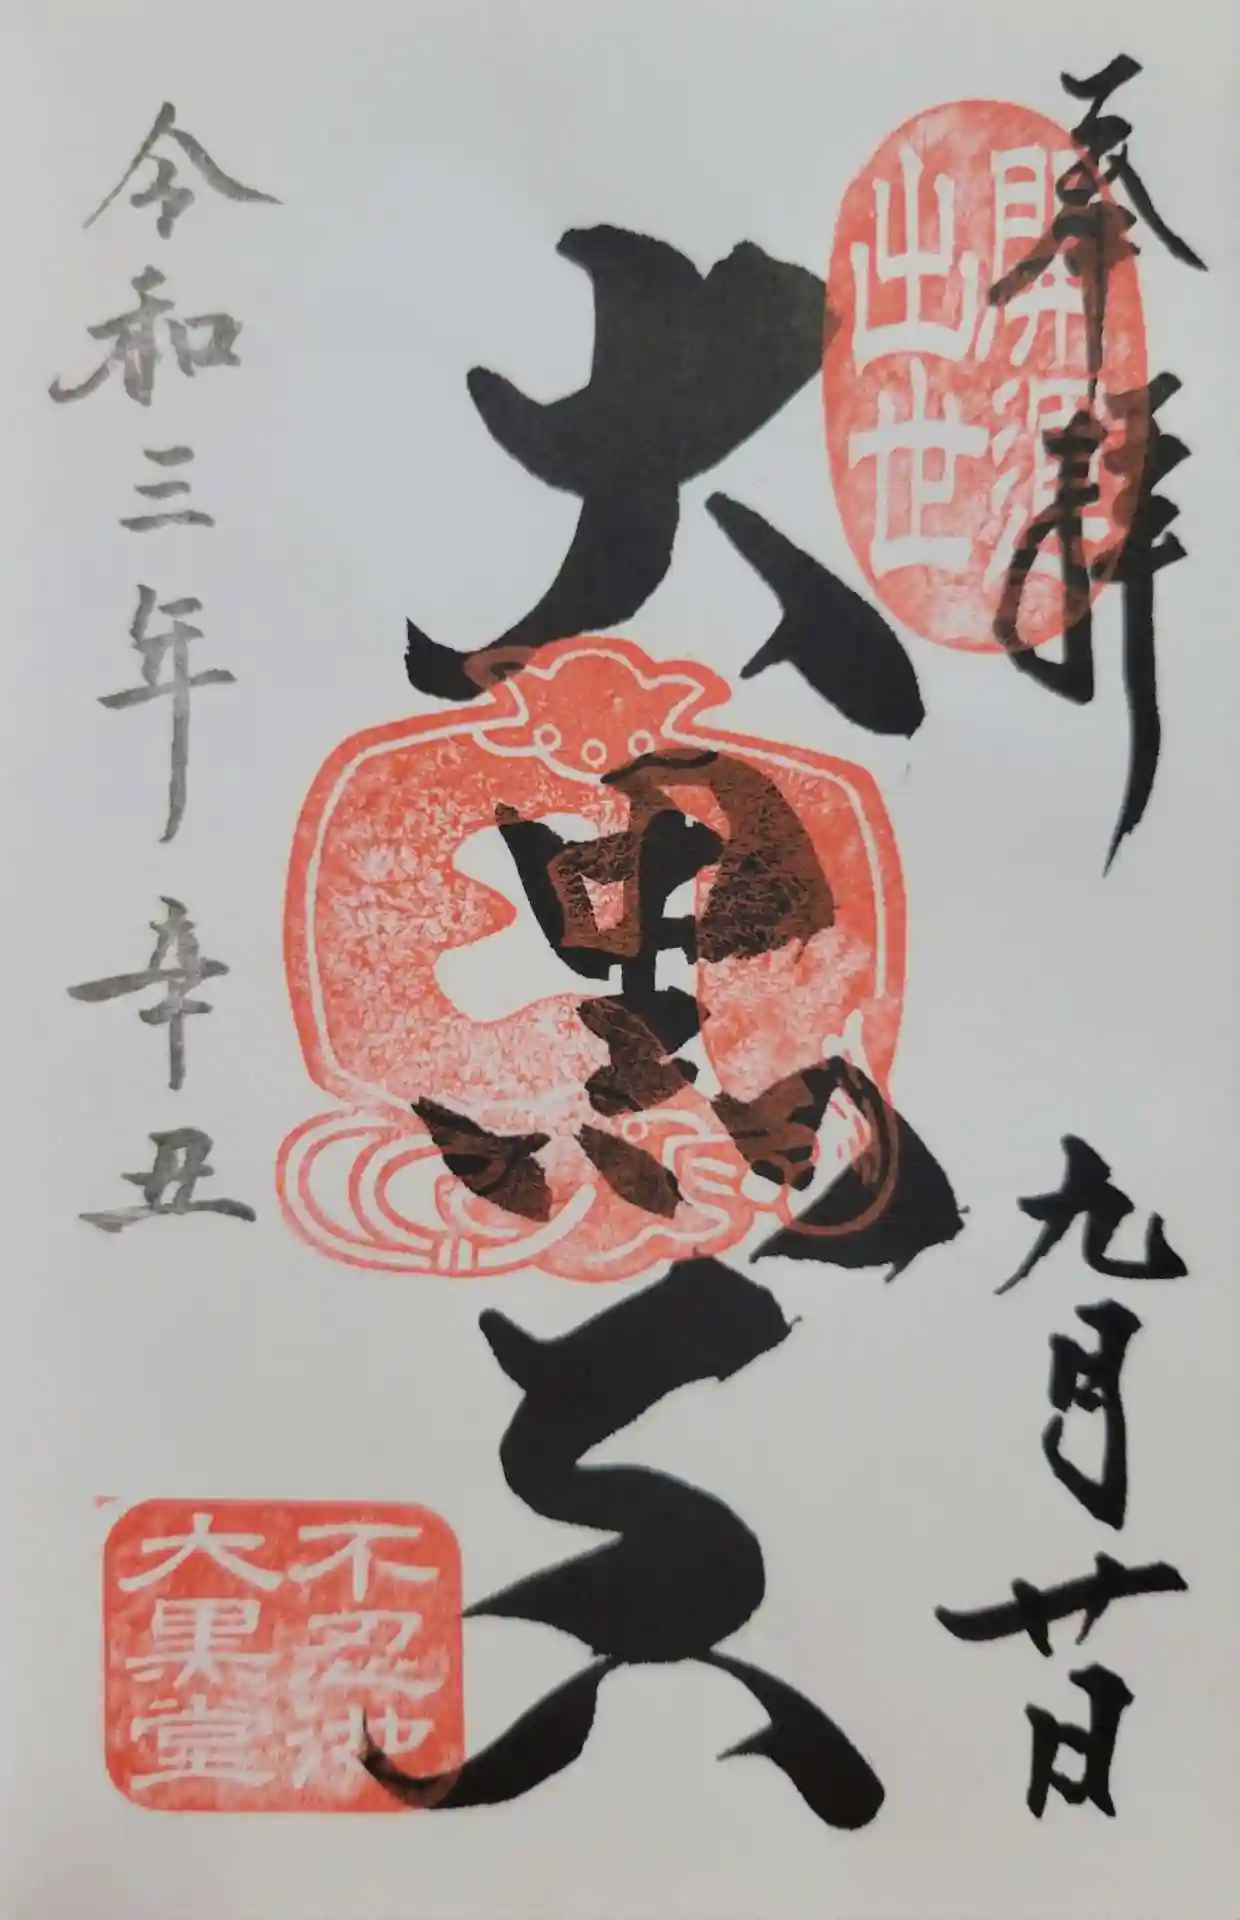 奉拝
九月廿日
開運
出世
大黒天
令和三年 辛丑
不忍池
大黒堂